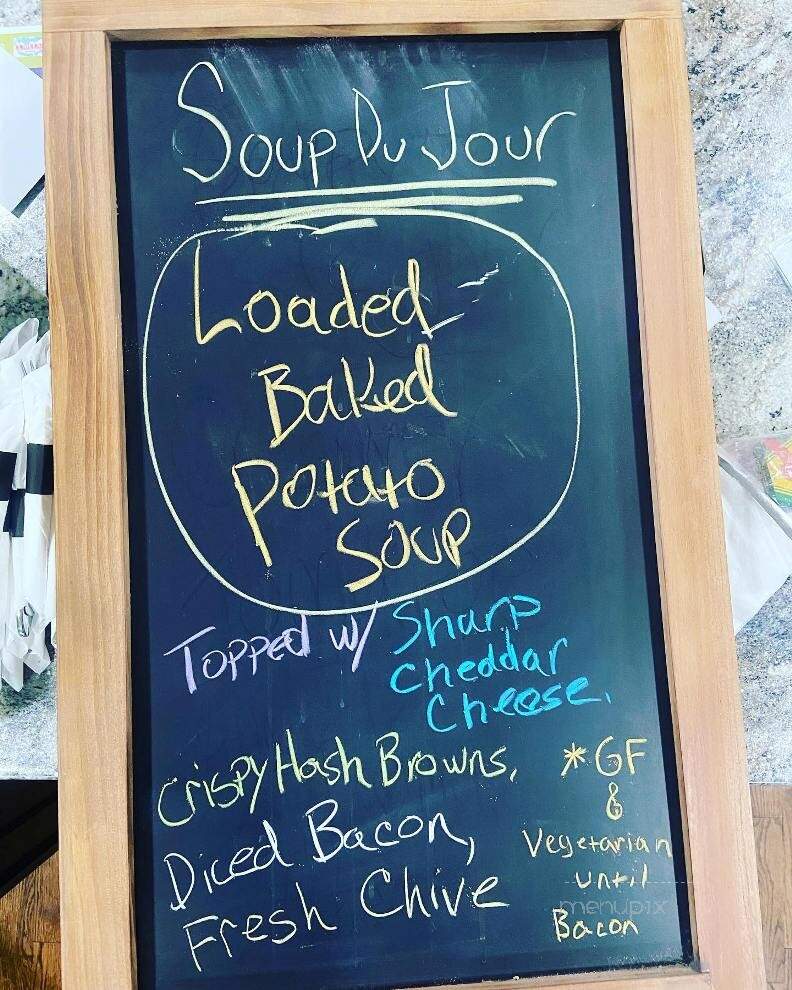 Soup Du Jour
Loaded
Baked
Potato
Soup
Topped w/ Sharp
Cheddar
Cheese,
Crispy Hash Browns,
Diced Bacon,
Fresh Chive
*GF
&
Vegetarian
until
Bacon
menupix